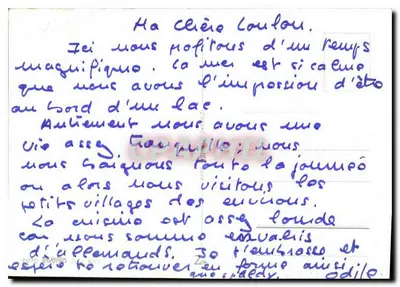 Ma Chère Loulou.
Ici nous profitons d'un temps
magnifique. La mer est si calme
que nous avons l'impression d'être
au bord d'un lac.
Autrement nous avons une
vie assez tranquille; nous
nous baignons toute la journée
ou alors nous visitons les
petits villages des environs.
La cuisine est assez lourde
car nous somme envahis
d'allemands. Je t'embrasse et
espère te retrouver en forme ainsi
Odile